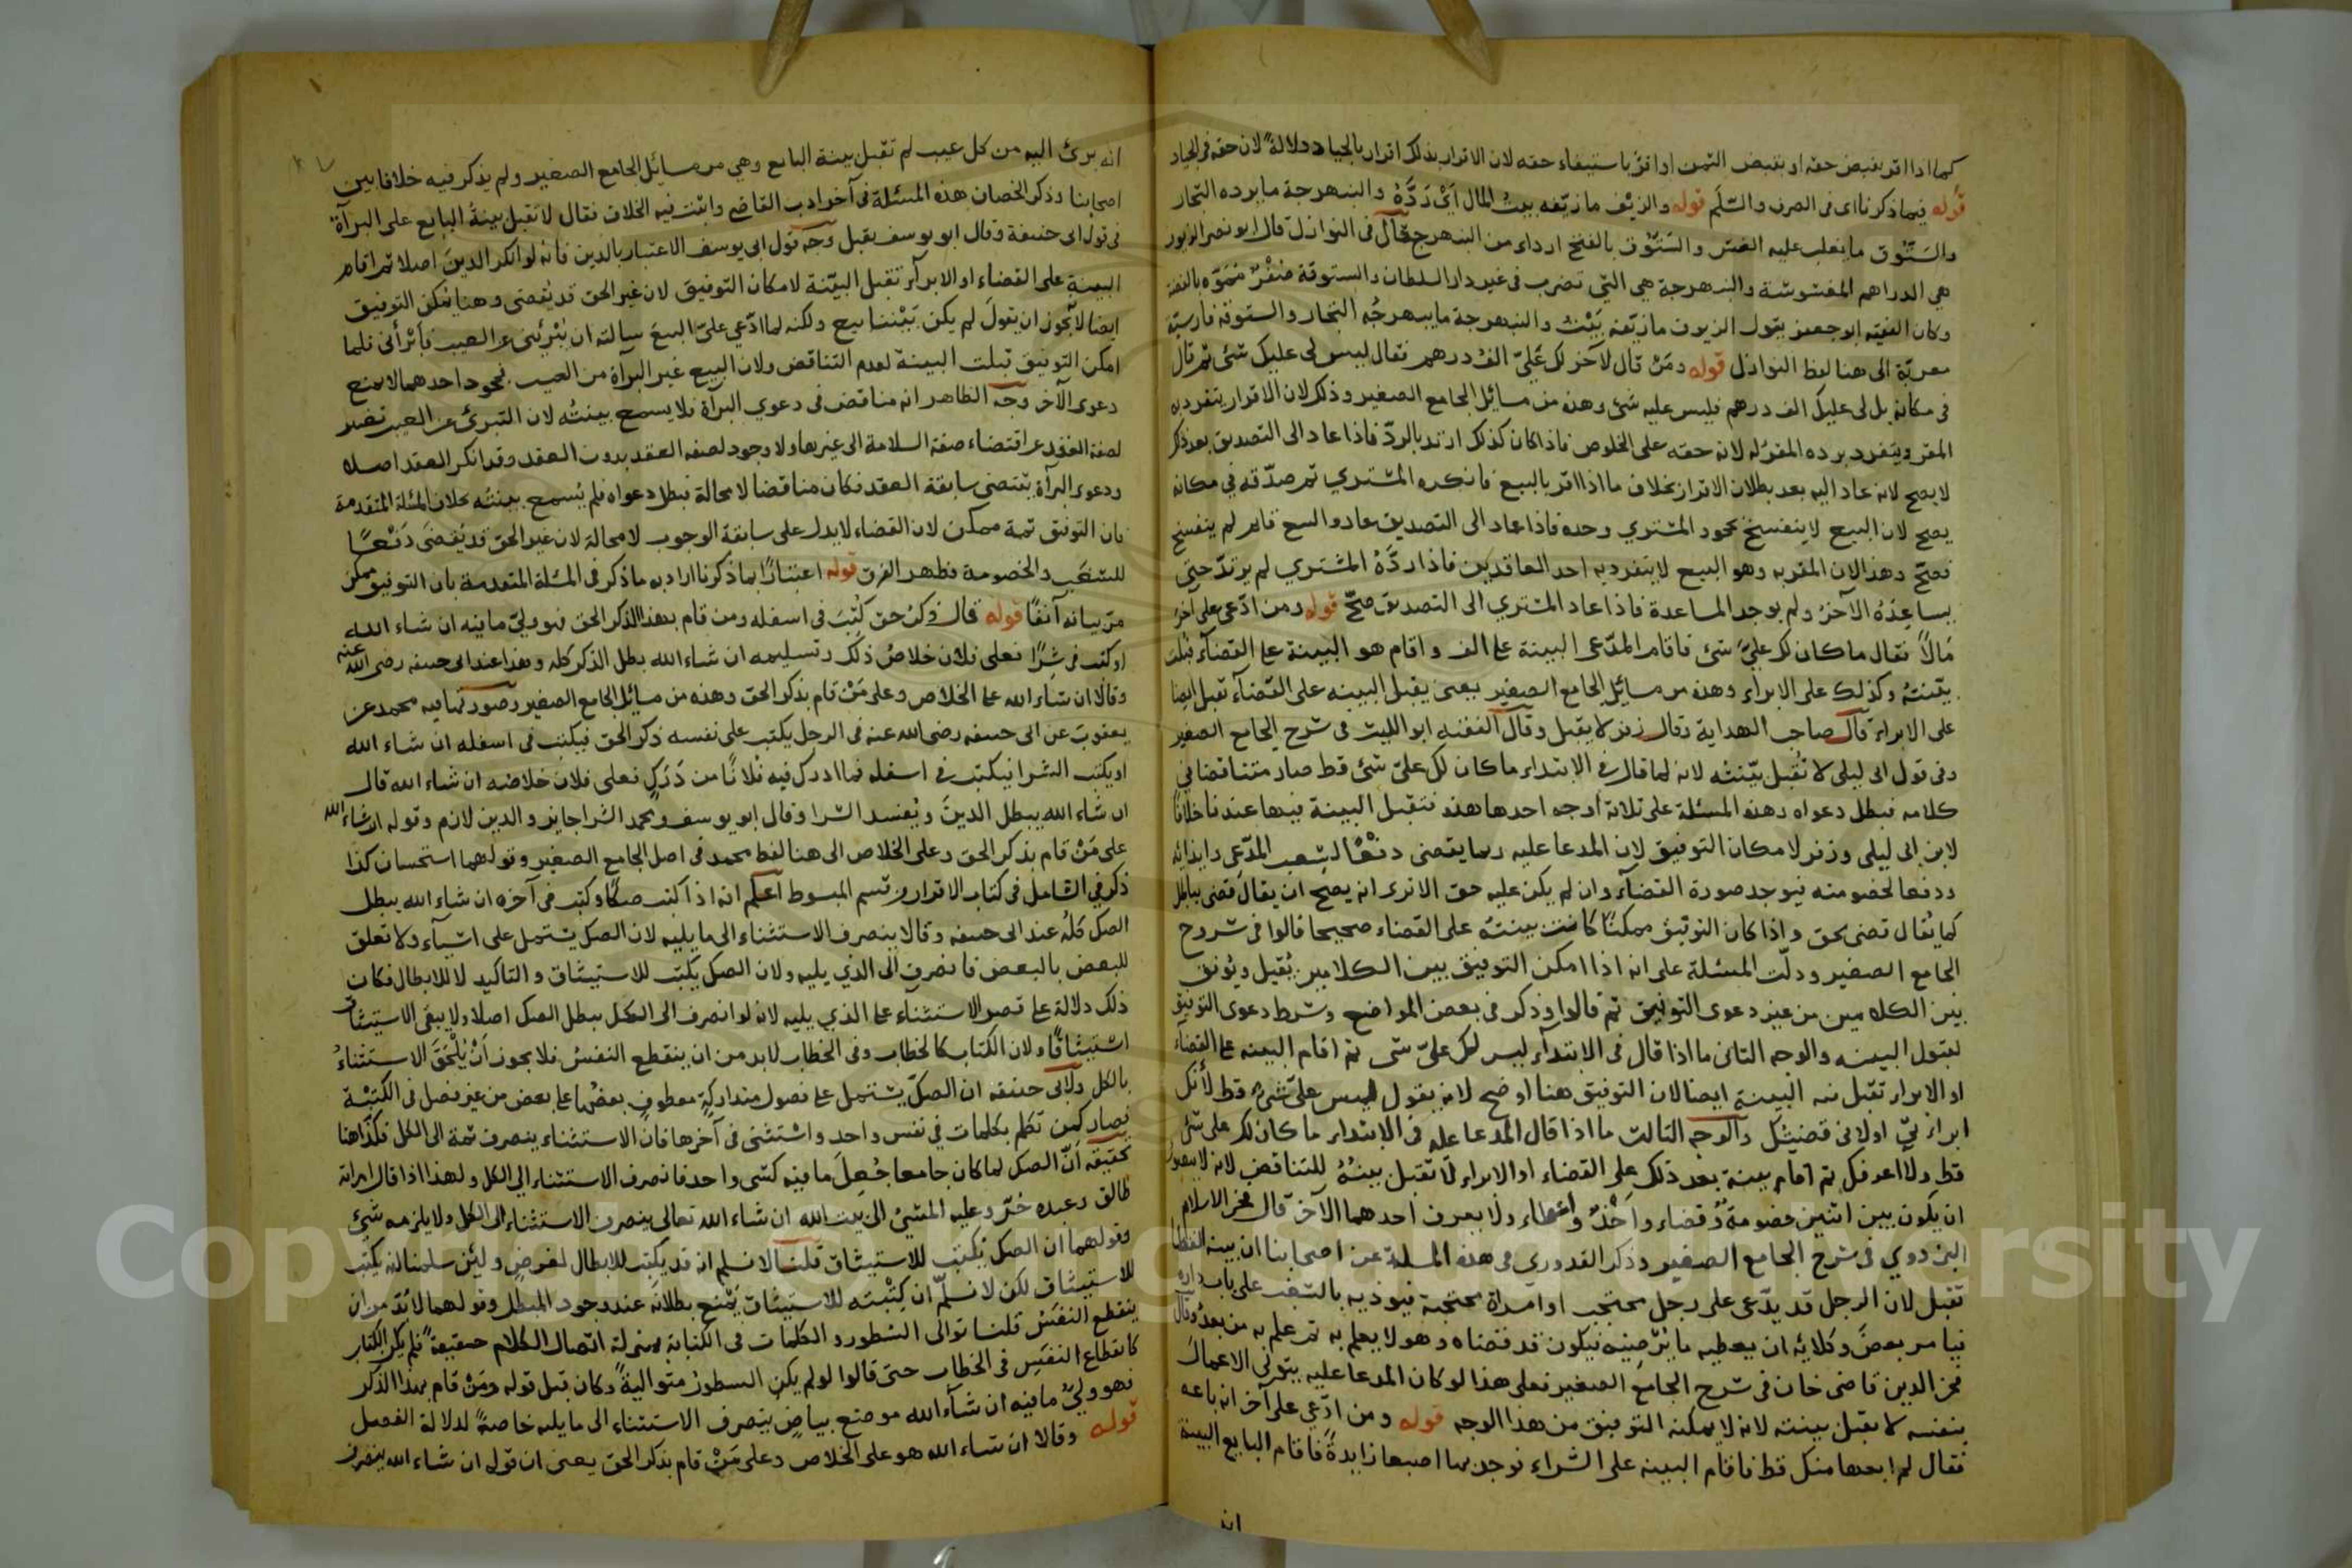 كما اذا اقر بقبض حقه او بقبض الثمن او اقرّ باستيفاء حقه لان الاقرار بذلك اقرار بالجياد دلالةً لان حقه فى الجياد
قوله فيما ذكرنا اى فى الصرف والسَّلَم قوله والزيف ما زيّفه بيتُ المال اَىْ رَدَّهُ والنبهرجة ما يرده التجار
والسَتّوق ما يغلب عليه الغش والسَتوُّق بالفتح ارداء من النبهرجة قال فى النوازل قال ابو نصر الزيوف
هى الدراهم المغشوشة والنبهرجة هى التى تضرب فى غير دار السلطان والستوقة صُفْرٌ مُمَوّه بالفضة
وكان الفقيه ابو جعفر يقول الزيوف ما زيّفه بَيْتُ والنبهرجة ما يبهرجُه التجار والستوقة فارسيّة
معربّة الى هنا لفظ النوازل قوله ومَنْ قال لآخر لك عَلَيّ الفُ درهم فقال ليس لى عليك شئ ثم قال
فى مكانه بل لى عليك الف درهم فليس عليه شئ وهذه من مسائل الجامع الصغير وذلك لان الاقرار يتفرد به
المقر ويتفرد برده المقرّ له لانه حقه على الخلوص فاذا كان كذلك ارتد بالردّ فاذا عاد الى التصديق بعد ذلك
لا يصح لانه عاد اليه بعد بطلان الاقرار بخلاف ما اذا اقر بالبيع فانكره المشتري ثم صدّقه فى مكانه
يصح لان البيع لا ينفسخ بجحود المشتري وحده فاذا عاد الى التصديق عاد والبيع قايم لم ينفسخ
فصحّ وهذا لان المقر به وهو البيع لا يتفرد به احد العاقدين فاذا ردَّهُ المشتري لم يرتدّ حتى
يساعِدَهُ الآخرُ ولم يوجد المساعدة فاذا عاد المشتري الى التصديق صَحّ قوله ومن ادّعى على آخر
مَالاً فقال ما كان لك عليَّ شئ فاقام المدّعى البينة على الف واقام هو البينة على القضآء قبلت
بيّنتهُ وكذلك على الابراء وهذه من مسايل الجامع الصغير يعنى يقبل البينه على القضآء تقبل ايضا
على الابراء قال صاحب الهداية وقال زفر لا يقبل وقال الفقيه ابو الليث فى شرح الجامع الصغير
وفى قول ابى ليلى لا تُقبل بيّنتُه لانه لما قال فى الابتداء ما كان لك علىّ شئ قط صار متناقضا في
كلامه فبطل دعواه وهذه المسئلة على ثلاثة اوجه احدها هذه فتقبل البينة فيها عندنا خلافًا
لابن ابى ليلى وزفر لامكان التوفيق لان المدعا عليه ربما يقضى دفْعًا لشغب المدّعِى وايذائه
ودفعا لخصومته فيوجد صورة القضآء وان لم يكن عليه حق الا ترى انه يصح ان يقال قضى بباطل
كما يُقال قضى بحق واذا كان التوفيق ممكنًا كانت بينتهُ على القضاء صحيحا قالوا فى شروح
الجامع الصغير ودلّت المسئلة على انه اذا امكن التوفيق بين الكلامين يُقبل ويُوفق
بين الكلامين من غير دعوى التوفيق ثم قالوا وذكر فى بعض المواضع وشرط دعوى التوفيق
لقبول البينه والوجه الثانى ما اذا قال فى الابتدآء ليس لك علىّ شى ثم اقام البينه على القضاء
او الابراء تقبل منه البينة ايضا لان التوفيق هنا اوضح لانه يقول ليس علىّ شىءٌ قط لأنك
والوجه الثالث ما اذا قال المدعا عليه فى الابتداء ما كان لك على شئ
قط ولا اعرفك ثم اقام بينة بعد ذلك على القضاء او الابراء لا تقبل بينتُهُ للتناقض لانه لا يتصور
ان يكون بين اثنين خصومةٌ وقضاء واَخْذٌ واعطاء ولا يعرف احدهما الآخر قال فخر الاسلام
البزدوي فى شرح الجامع الصغير وذكر القدوري فى هذه المسلة عن اصحابنا ان بينه القضا
تقبل لان الرجل قد يدّعى على رجل محتجب او امراة محتجبة فيوذيه بالشغب على باب داره
فيامر بعضَ وكلائه ان يعطيه ما يُرْضِيْه فيكون قد قضاه وهو لا يعلم به ثم علم به من بعدُ وقال
فخر الدين قاضى خان فى شرح الجامع الصغير فعلى هذا لو كان المدعا عليه يتولى الاعمال
بنفسه لا يقبل بينته لانه لا يمكنه التوفيق من هذا الوجه قوله ومن ادّعي على آخر انه باعه
فقال لم ابعها منك قط فاقام البينه على الشراء فوجد بها اصبعا زايدةً فاقام البايع البينة
انه
انه برئ اليه من كل عيب لم تقبل بينة البايع وهي من مسايُل الجامع الصغير ولم يذكر فيه خلافا بين
اصحابنا وذكر الخصاف هذه المسئلة فى آخر ادب القاضى واثبت فيه الخلاف فقال لا تقبل بينةُ البايع على البرآة
فى قول ابى حنيفة وقال ابو يوسف يقبل وجه قول ابى يوسف الاعتبار بالدين فانه لو انكر الدينَ اصلا ثم اقام
البينة على القضاء او الابرآء تقبل البيّنة لامكان التوفيق لان غير الحق قد يُقضى وهنا يمكن التوفيق
ايضا لا يجوز ان يقولَ لم يكن بَيْننا بيع ولكنه لما ادّعي علىّ البيعَ سالته ان يُبْرِئنى عن العيب فَاَبْرأنى فلما
امكن التوفيق قبلت البينة لعدم التناقض ولان البيع غير البرآة من العيب فجحود احدهما لا يمنع
دعوى الآخر وجه الظاهر انه مناقض فى دعوي البرآة فلا يسمع بينتُه لان التبرئ عن العيب تغيير
لصفة العقد عن اقتضاء صفة السلامة الى غيرها ولا وجود لصفه العقد بدون العقد وقد انكر العقد اصلا
ودعوى البرآة يقتضى سابقة العقد فكان مناقضا لا محالة فبطل دعواه فلم يُسمع بينتُه بخلاف المسئلة المتقدمة
فان التوفيق ثمة ممكن لان القضاء لا يدل على سابقة الوجوب لا محالة لان غير الحق قد يُقضَى دَفْعًا
للشغب والخصومة فظهر الفرق قوله اعتبارًا بما ذكرنا اراد به ما ذكر فى المسئلة المتقدمة بان التوفيق ممكن
مرّ بيانه آنفًا قوله قال وذكرُ حق كُتِبَ فى اسفله ومن قام بهذا الذكر الحق فهو وليّ ما فيه ان شاء الله
او كتب فى شرًا فعلى فلان خلاصُ ذلك وتسليمه ان شاء الله بطل الذكر كله وهذا عند ابى حنيفه رضى الله عنه
وقالا ان شاء الله على الخلاص وعلى مَنْ قام بذكر الحق وهذه من مسايل الجامع الصغير وصورتها فيه محمد عن
يعقوبَ عن ابى حنيفه رضى الله عنه فى الرجل يكتب على نفسه ذكر الحق فيكتب فى اسفله ان شاء الله
او يكتب الشرا فيكتب فى اسفله فما ادرك فيه فلانًا من دَرَكٍ فعلى فلان خلاصه ان شاء الله قال
ان شاء الله يبطل الدينَ ويُفسد الشرا وقال ابو يوسف ومحمد الشرا جايز والدين لازم وقوله ان شاء الله
على مَنْ قام بذكر الحق وعلى الخلاص الى هنا لفظ محمد فى اصل الجامع الصغير وقولهما استحسان كذا
ذكر فى الشامل فى كتاب الاقرار من قسم المبسوط اعلم انه اذا كتب صكا وكتب فى آخره ان شاء الله يبطل
الصك كلُه عند ابى حنيفه وقالا ينصرف الاستثناء الى ما يليه لان الصك يشتمل على اشيآء ولا تعلق
للبعض بالبعض فانصرف الى الذي يليه ولان الصك يكتب للاستيثاق والتاكيد لا للابطال فكان
ذلك دلالة على قصر الاستثنآء على الذي يليه لانه لو انصرف الى الكل يبطل الصك اصلا ولا يبقى الاستيثاق
استيثاقًا ولان الكتاب كالخطاب وفى الخطاب لابد من ان ينقطع النفس فلا يجوز اَنْ يُلْحَقَ الاستثناءُ
بالكل ولابى حنيفه ان الصكّ يشتمل على فصول متداركةٍ معطوفٍ بعضُها على بعض من غير فصل فى الكتبْة
فصار كمن تكلم بكلمات فى نفس واحد واستثنى فى آخرها فان الاستثناء ينصرف ثمة الى الكل فكذا هنا
تحقيقه اَنّ الصك لما كان جامعا جُعِلَ ما فيه كشى واحد فانصرف الاستثناء الي الكل ولهذا اذا قال امراته
طالق وعبده حُرّ وعليه المشىُ الى بيت الله ان شاء الله تعالى ينصرف الاستثناء الى الكل ولا يلزمه شئ
وقولهما ان الصك يكتب للاستيثاق قلنا لا نسلم انه قد يكتب للابطال لغرض ولئن سلمنا انه يكتب
للاستيثاق لكن لا نسلّم اَن كِتْبته للاستيثاق يَمْنع بطلانه عند وجود المبطل وقولهما لا بُدّ من ان
ينقطع النفَسُ قلنا توالى السُطور والكلمات فى الكتابة بمنزلة اتّصال الكلام حقيقةً فلم يكن الكتاب
كانقطاع النفَس فى الخطاب حتى قالوا لو لم يكن السطورُ متواليةً وكان قبل قوله ومَنْ قام بهذا الذكر
فهو وليُّ ما فيه ان شآء الله موضع بياضٍ ينصرف الاستثناء الى ما يليه خاصةً لدلالة الفصل
قوله وقالا ان شاء الله هو على الخلاص وعلى مَنْ قام بذكر الحق يعنى ان قوله ان شاء الله ينصرف
Copyright © King Saud University